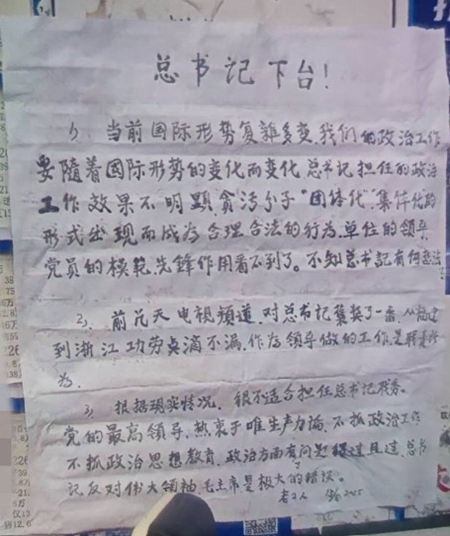 总书记下台！
1）、当前国际形势复雜多变，我们的政治工作
要随着国际形势的变化而变化 总书记担任的政治
工作效果不明顕，貪污分子"团体化""集体化"的
形式出现而成为合理合法的行为，单位的领导，
党员的模範，先鋒作用看不到了。不知总书記有何想法
2）、前几天电视频道，对总书记集装了一番，从福建
到浙江功劳点滴不漏，作为领导做的工作是
为。
3、根据现实情况，很不适合担任总书记职务。
党的最高领导，热衷于唯生产力論，不抓政治工作
不抓政治思想教育，政治方面有问題 得过且过，总书
记反对伟大领袖毛主席是极大的错误。
老工人 2025